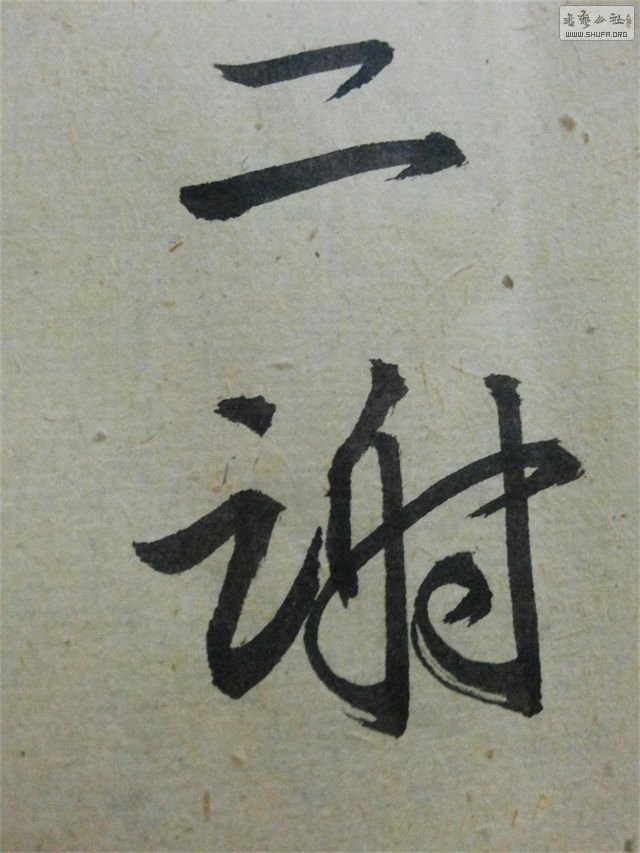 二谢
書藝公社
WWW.SHUFA.ORG